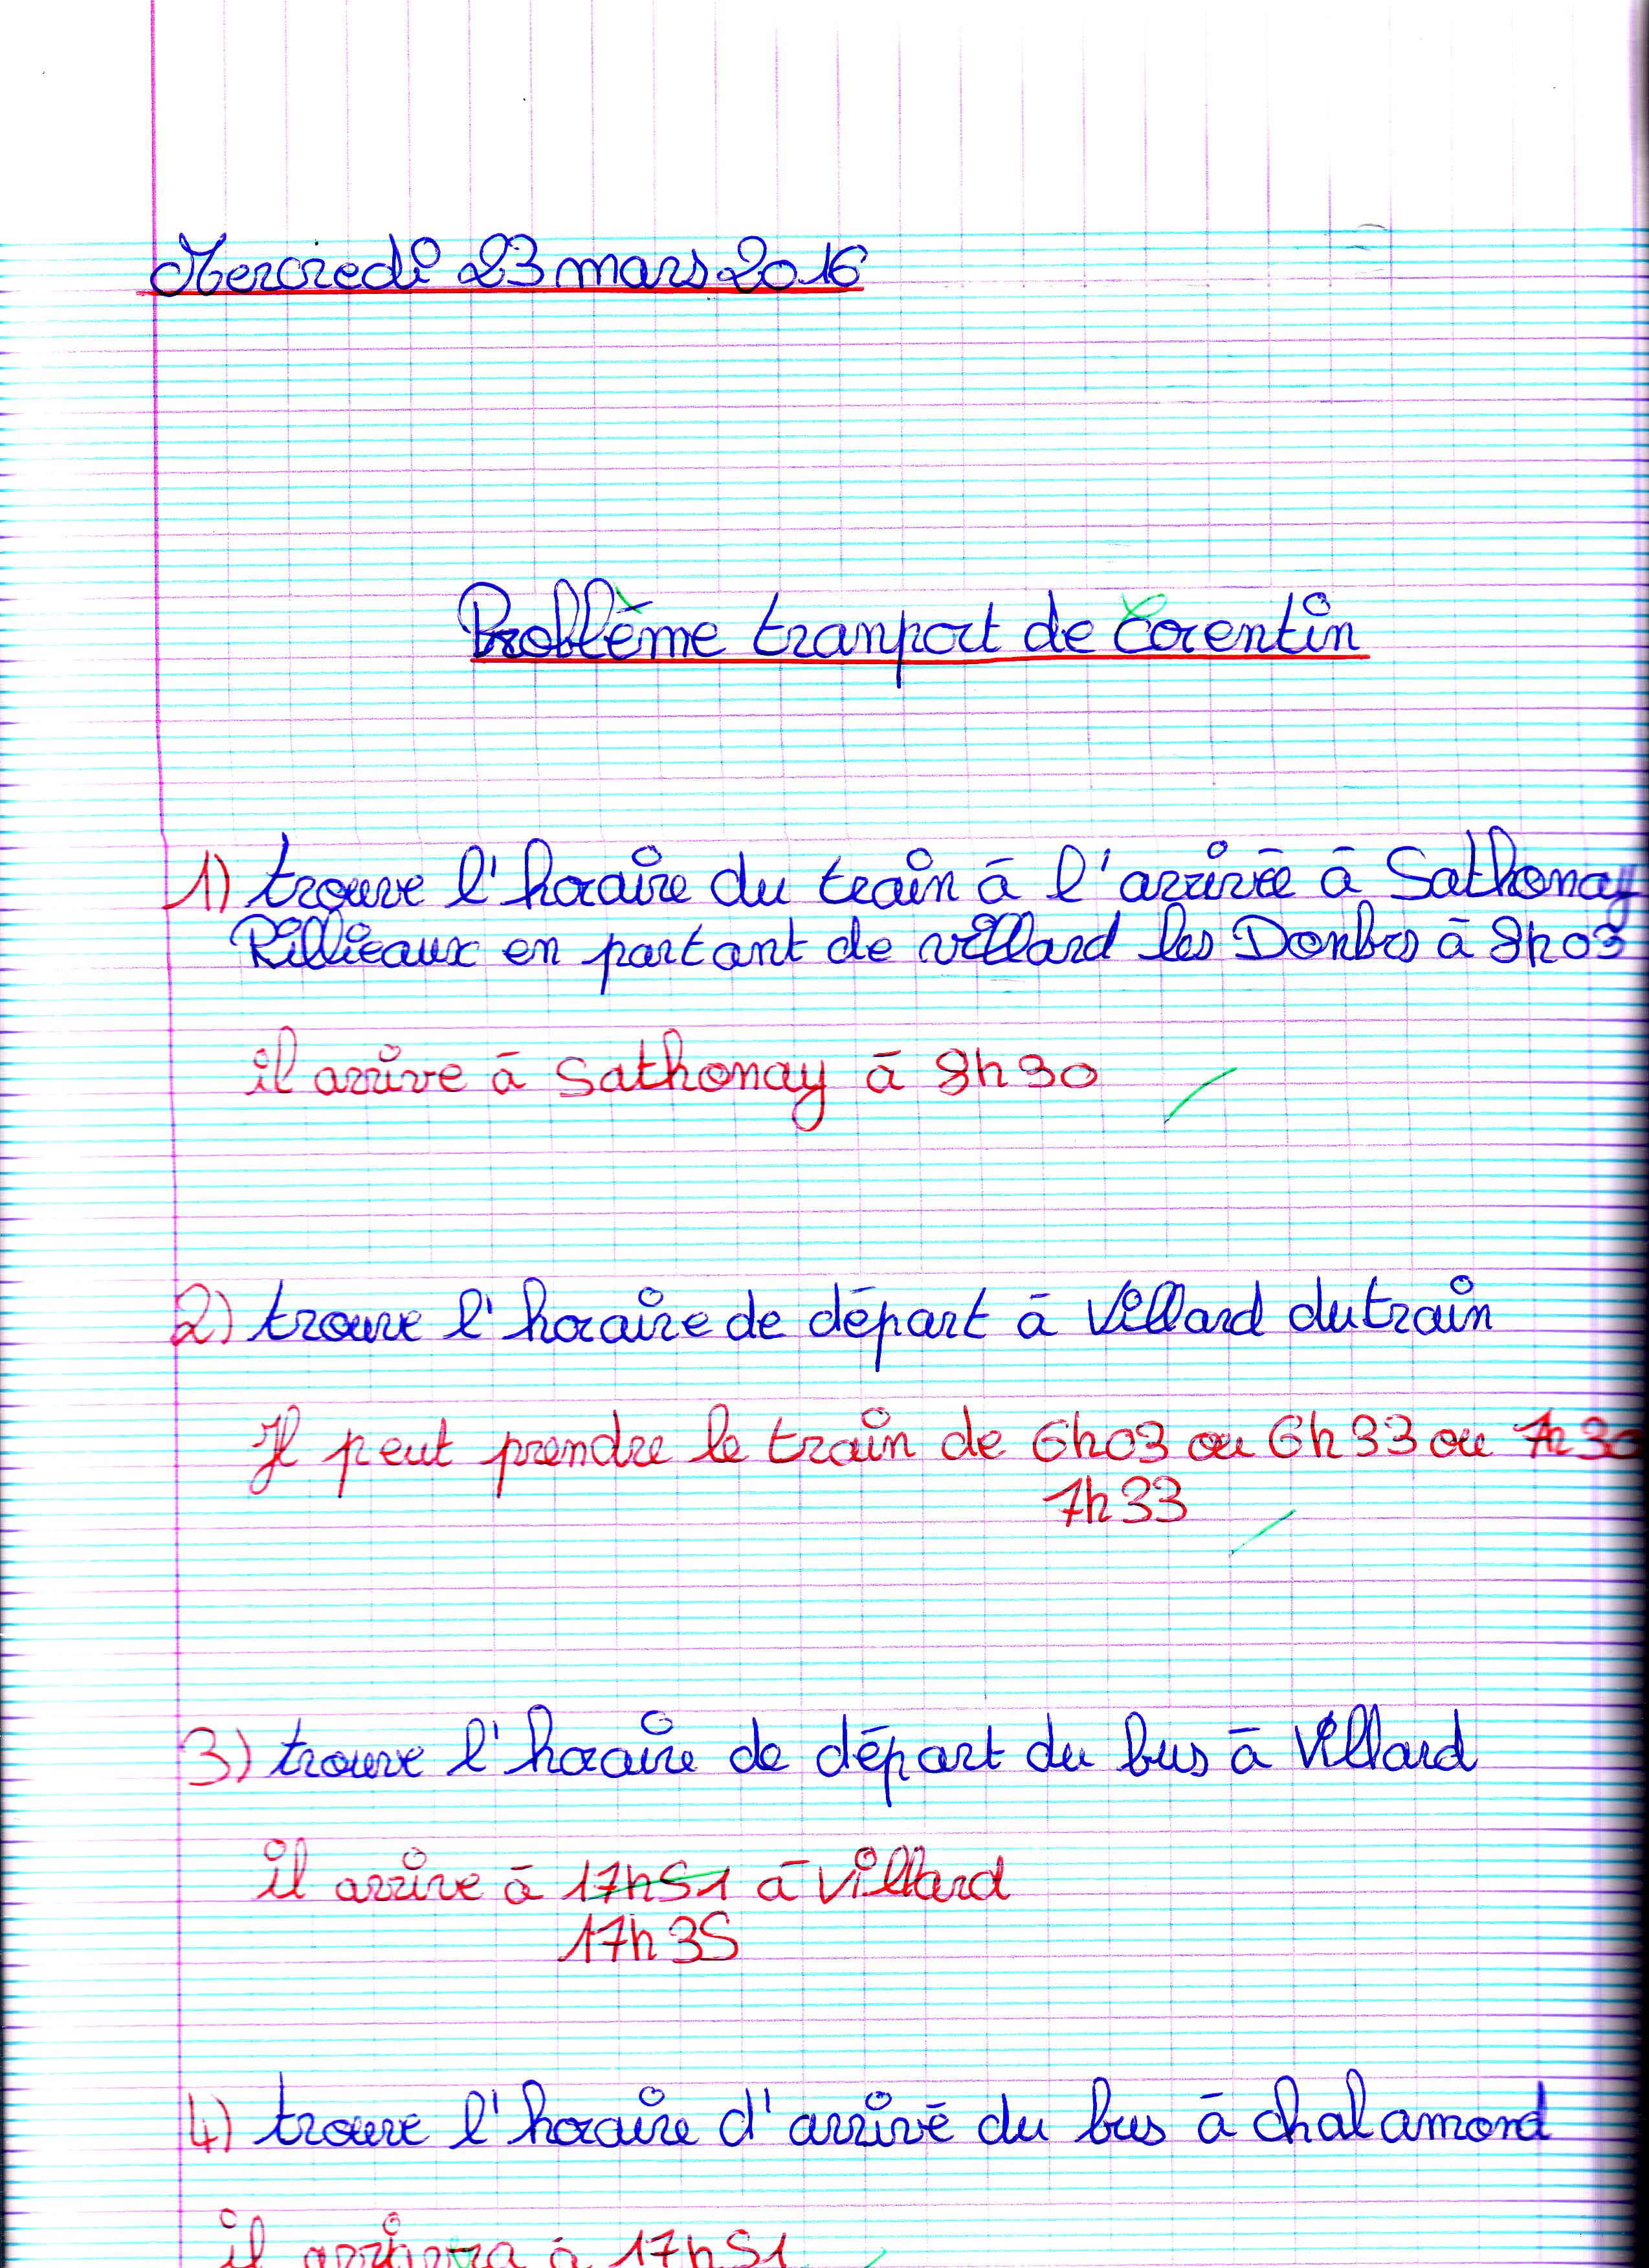 Mercredi 23 mars 2016
Problème tranport de Corentin
1) trouve l'horaire du train à l'arrivée à Sathonay
Rillieaux en partant de villard les Donbes à 8h03
il arrive à Sathonay à 8h30
2) trouve l'horaire de départ à Villard du train
Il peut prendre le train de 6h03 ou 6h33 ou 7h30
7h33
3) trouve l'horaire de départ du bus à Villard
il arrive à 17h51 à Villard
17h35
4) trouve l'horaire d'arrivé du bus à chalamond
il arrivera à 17h51